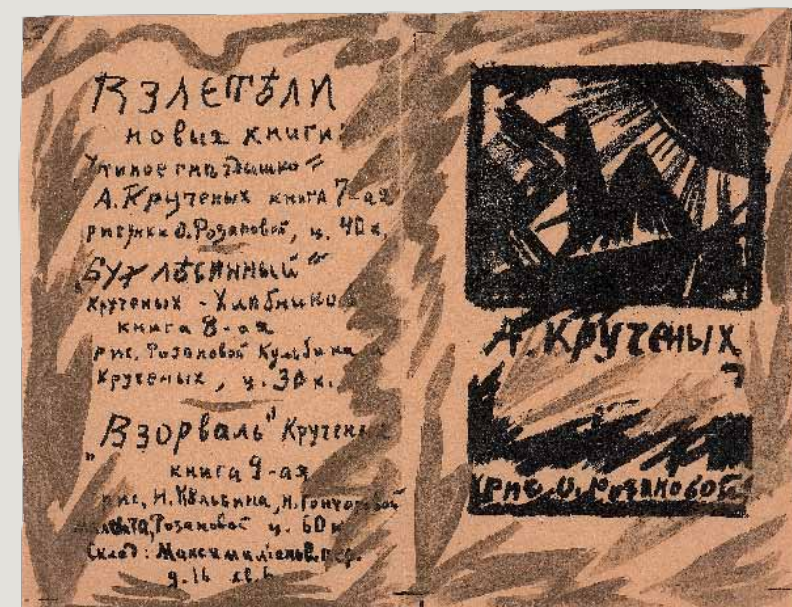 Взлетѣли
новыя книги:
А. Крученых книга 7-ая
рисунки О. Розановой, ц. 40 к.
„Бух лѣсинный“
Крученых - Хлебников
книга 8-ая
рис. Розановой Кульбина и
Крученых, ц. 30 к.
„Взорваль“ Крученых
книга 9-ая
рис. Н. Кульбина, Н. Гончаровой
Розановой ц. 60 к
Склад:
д. 16
А. Крученых
рис. О. Розановой